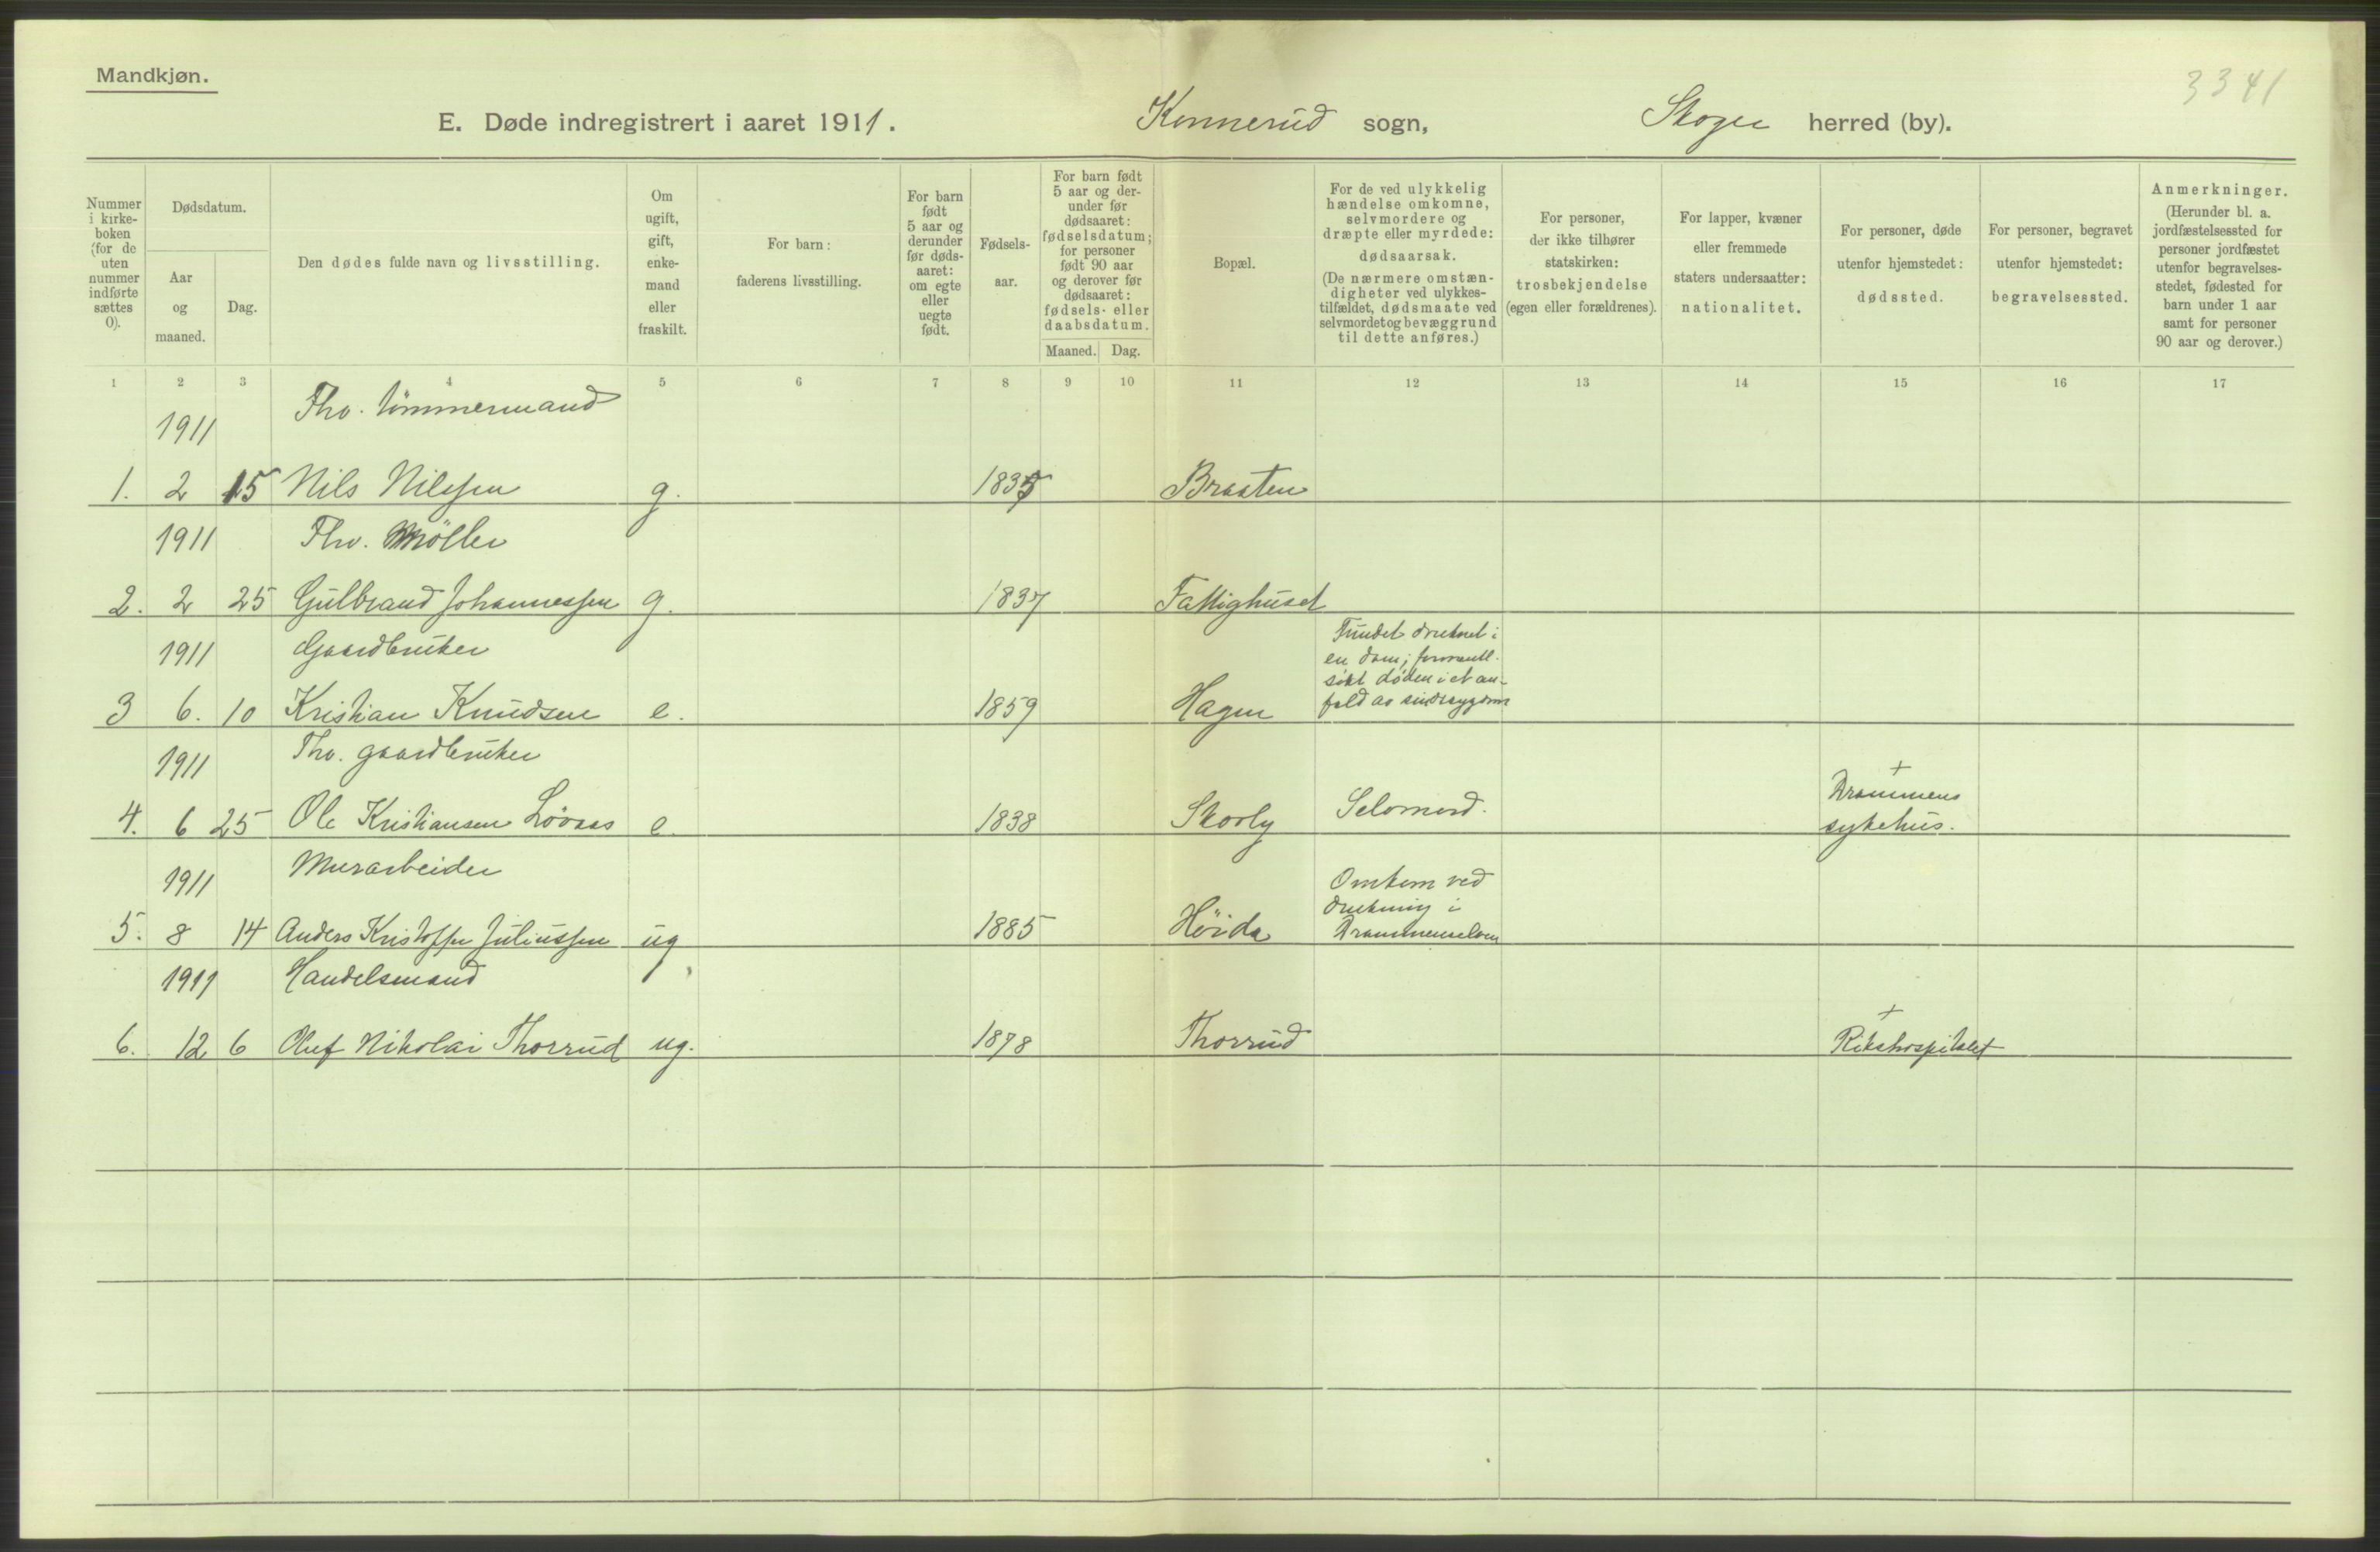 Mandkjøn.
3341
E. Døde indregistrert i aaret 1911. Konnerud sogn, Skoger herred (by).
Nummer i kirke-boken (for de uten nummer indførte sættes 0).
Dødsdatum.
Aar og maaned.
Dag.
Den dødes fulde navn og livsstilling.
Om ugift, gift, enke-mand eller fraskilt.
For barn: faderens livsstilling.
For barn født 5 aar og derunder før døds-aaret: om egte eller uegte født.
Fødsels-aar.
For barn født 5 aar og der-under før dødsaaret: fødselsdatum; for personer født 90 aar og derover før dødsaaret: fødsels- eller daabsdatum.
Maaned. Dag.
Bopæl.
For de ved ulykkelig hændelse omkomne, selvmordere og dræpte eller myrdede: dødsaarsak. (De nærmere omstæn-digheter ved ulykkes-tilfældet, dødsmaate ved selvmordet og bevæggrund til dette anføres.)
For personer, der ikke tilhører statskirken: trosbekjendelse (egen eller forældrenes).
For lapper, kvæner eller fremmede staters undersaatter: nationalitet.
For personer, døde utenfor hjemstedet: dødssted.
For personer, begravet utenfor hjemstedet: begravelsessted.
Anmerkninger. (Herunder bl. a. jordfæstelsessted for personer jordfæstet utenfor begravelses-stedet, fødested for barn under 1 aar samt for personer 90 aar og derover.)
1 2 3 4 5 6 7 8 9 10 11 12 13 14 15 16 17
1911 Fhv. tömmermand
1. 2 15 Nils Nilssen g. 1835 Braaten
1911 Fhv. Möller
2. 2 25 Gulbrand Johannessen g. 1837 Fattighuset
1911 Gaardbruker
Fundet druknet i
en dam; formentl.
søkt døden i et an-
fald av sindssygdom
3 6. 10 Kristian Knudsen e. 1859 Hagen
1911 Fhv. gaardbruker
4. 6 25 Ole Kristiansen Lövaas e. 1838 Skovly Selvmord.
+
Drammens
sykehus.
1911 Murarbeider
Omkom ved
drukning i
Drammenselven
5. 8 14 Anders Kristoffer Juliussen ug 1885 Höida
1911 Handelsmand
6. 12 6 Oluf Nikolai Thorrud ug. 1878 Thorrud
+
Rikshospitalet